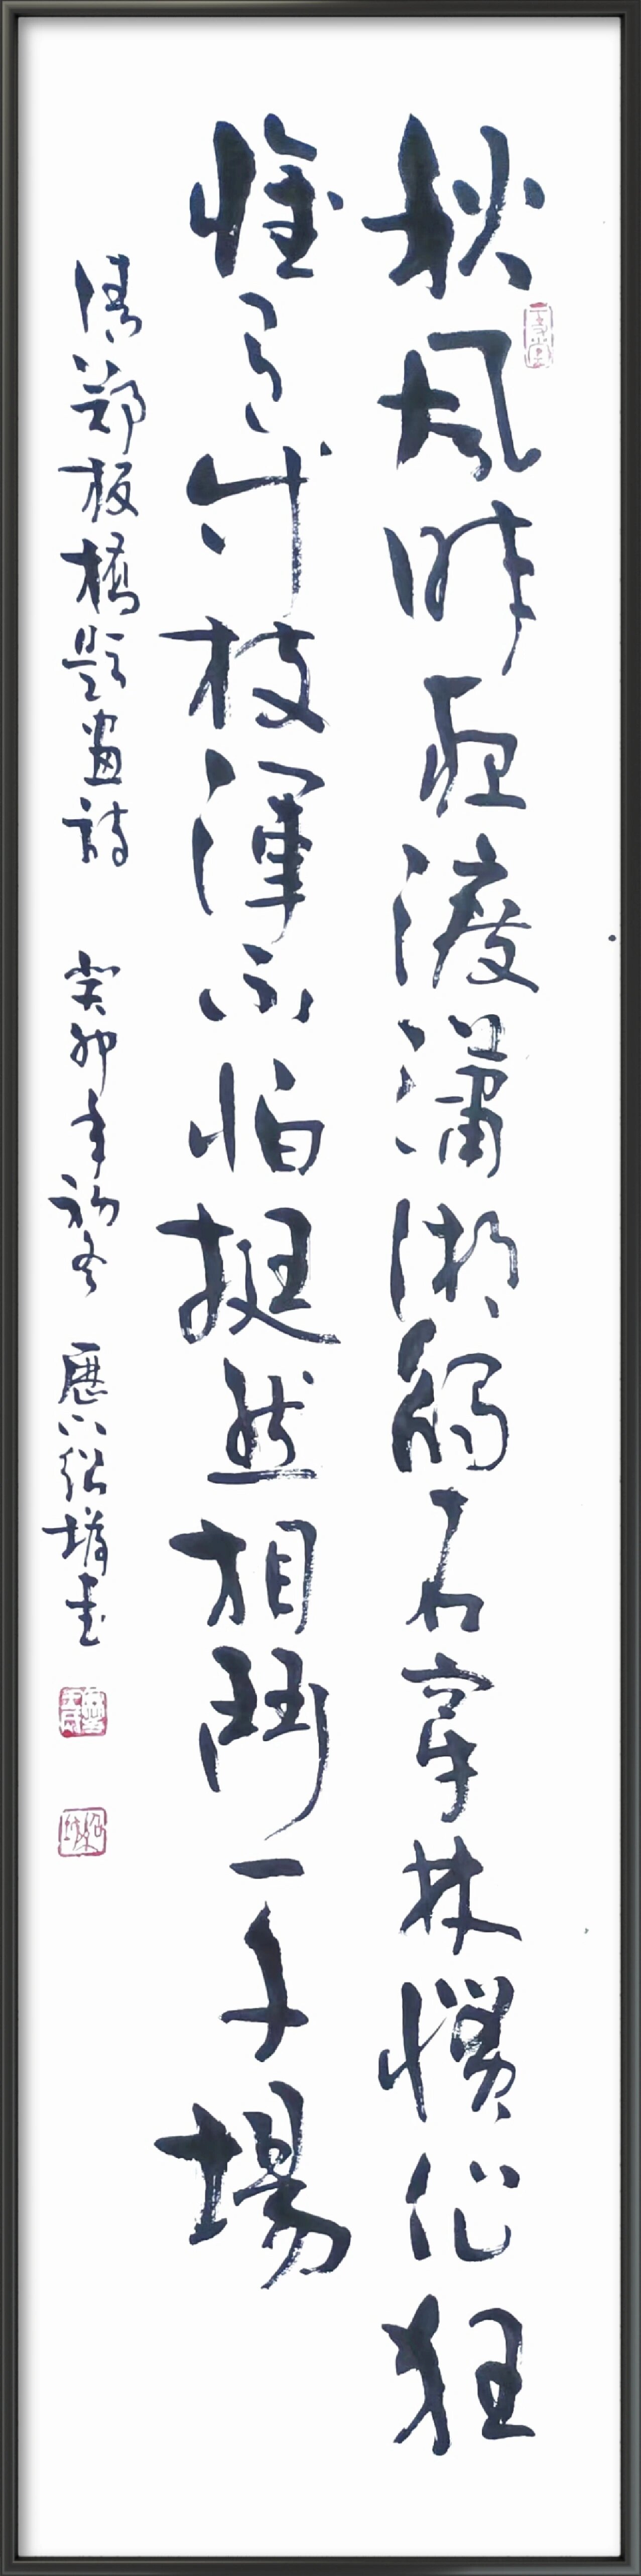 秋風昨夜渡瀟湘觸石穿林慣作狂
惟有竹枝渾不怕挺然相鬥一千場
清鄭板橋題畫詩 癸卯年初冬 紹書